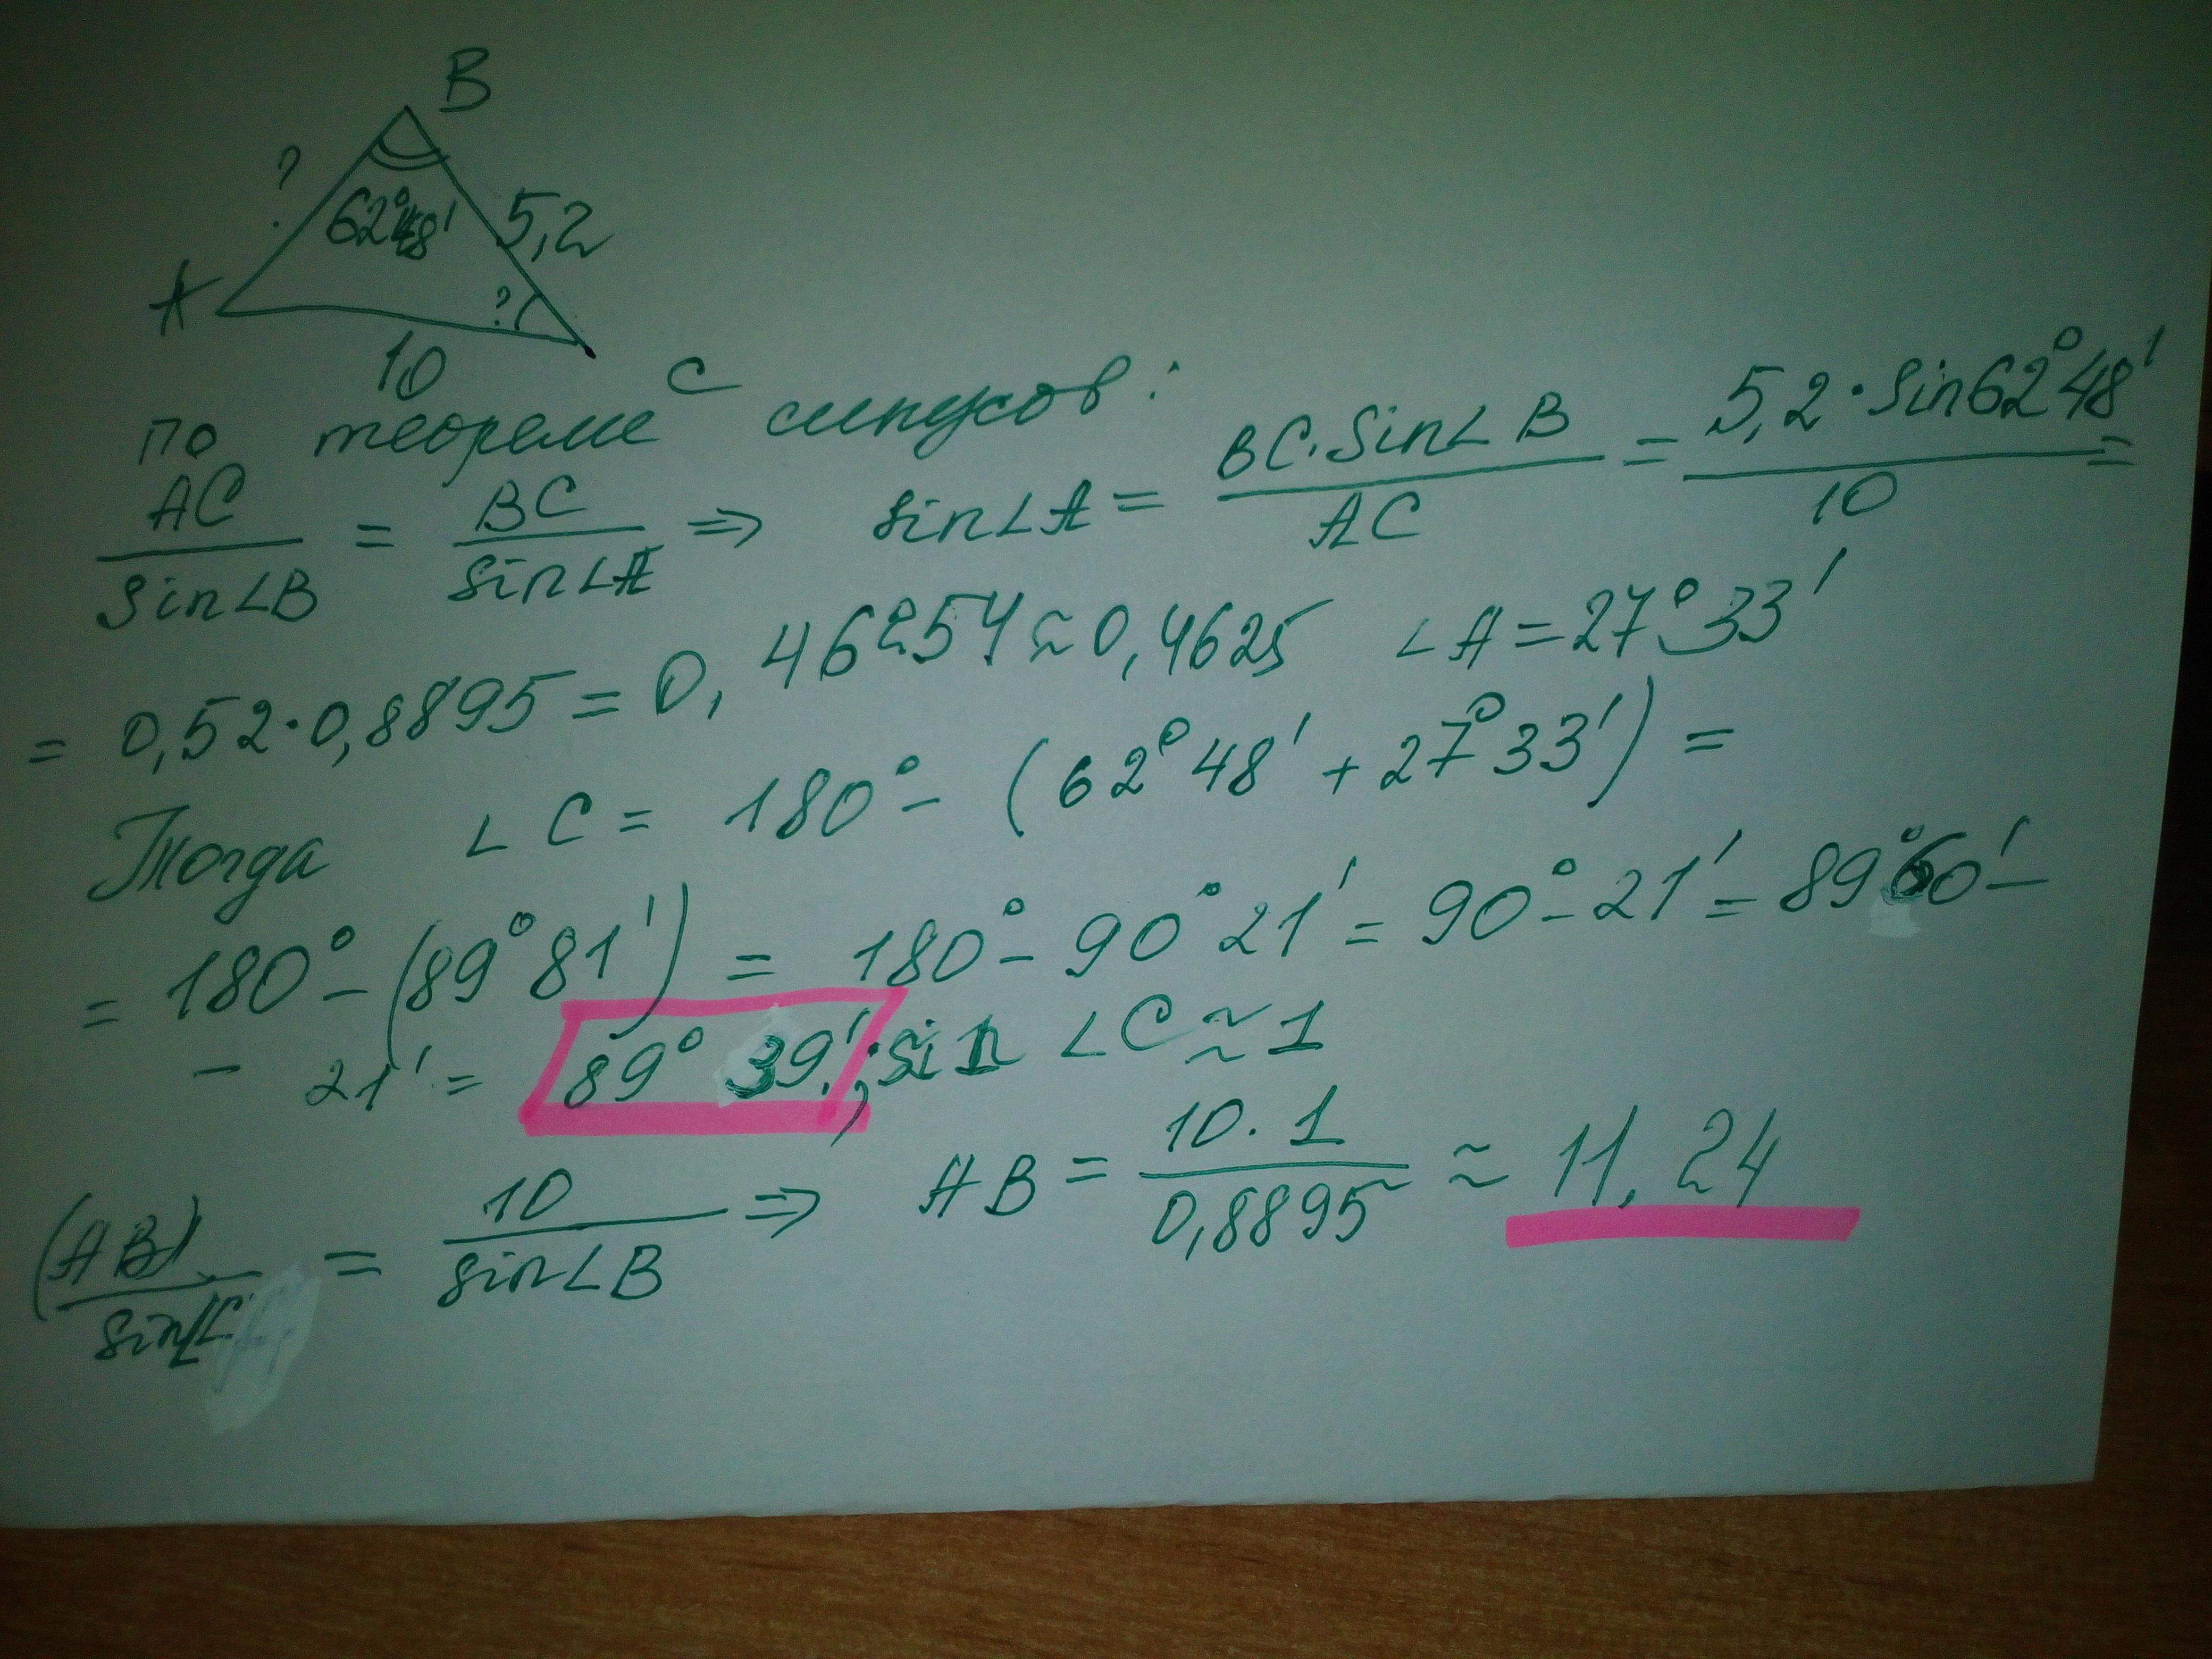 B
?
62°48'
5,2
A
?
10
C
по теореме синусов:
AC/sin∠B = BC/sin∠A ⇒ sin∠A = BC·sin∠B/AC = 5,2·sin62°48'/10 =
= 0,52·0,8895 = 0,46254 ≈ 0,4625 ∠A = 27°33'
Тогда ∠C = 180° - (62°48' + 27°33') =
= 180° - (89°81') = 180° - 90°21' = 90° - 21' = 89°60' -
- 21' = 89°39'; sin ∠C ≈ 1
(AB)/sin∠C = 10/sin∠B ⇒ AB = 10·1/0,8895 ≈ 11,24